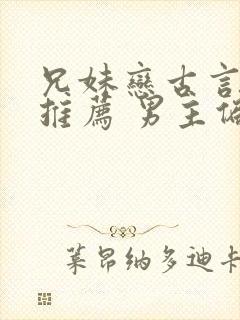 兄妹戀古言
推薦 男主偏
萊昂納多迪卡